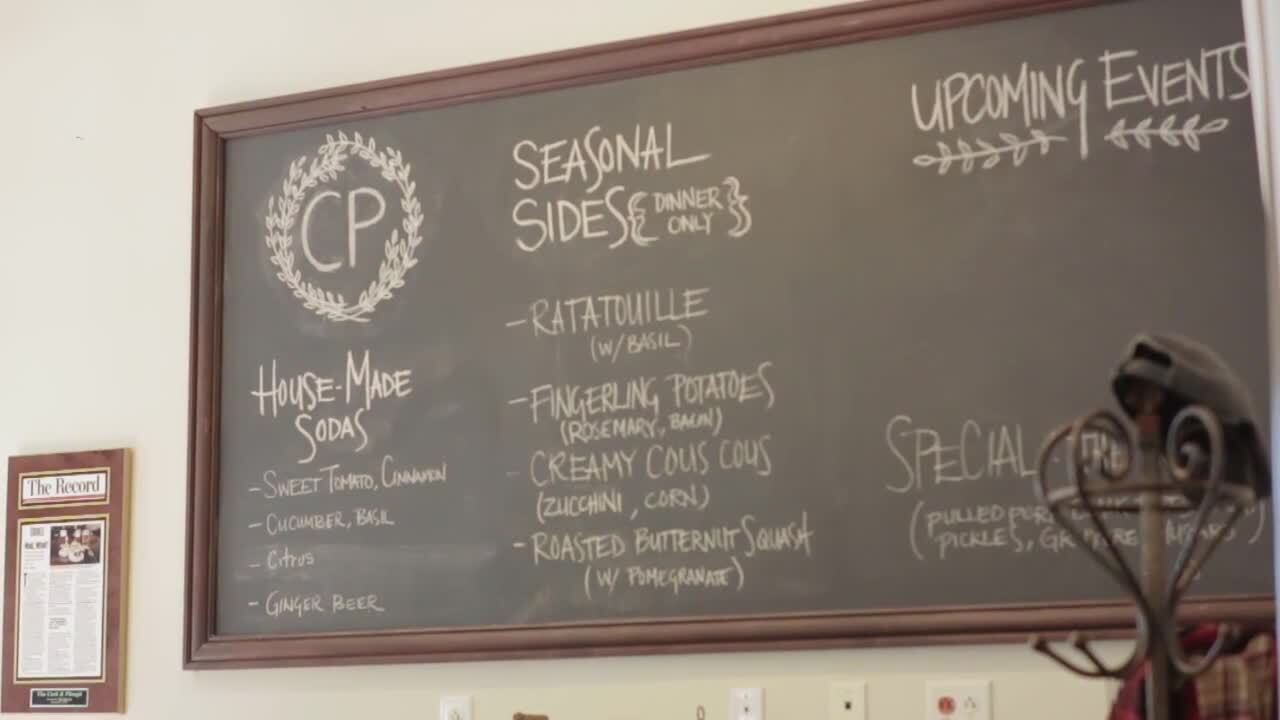 CP
HOUSE-MADE
SODAS
- SWEET TOMATO, CINNAMON
- CUCUMBER, BASIL
- CITRUS
- GINGER BEER
SEASONAL
SIDES {{ DINNER ONLY }}
- RATATOUILLE
(W/ BASIL)
- FINGERLING POTATOES
(ROSEMARY, BACON)
- CREAMY COUS COUS
(ZUCCHINI, CORN)
- ROASTED BUTTERNUT SQUASH
(W/ POMEGRANATE)
UPCOMING EVENTS
SPECIAL
(PULLED PORK
PICKLES,
The Record